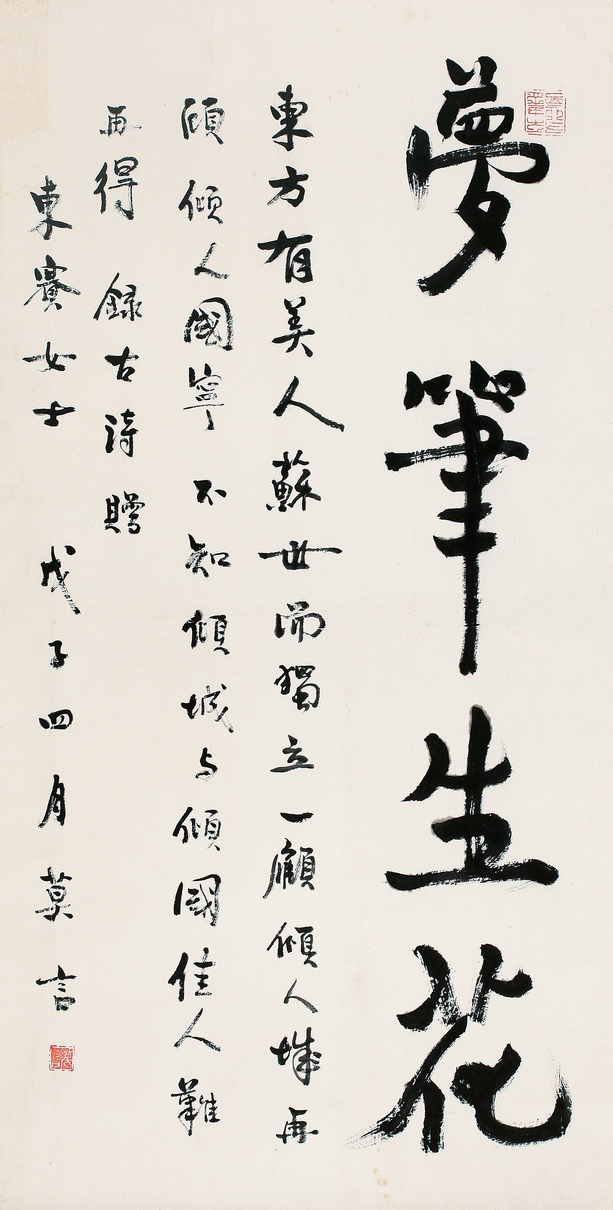 夢筆生花
東方有美人蘇世而獨立一顧傾人城再
顧傾人國寧不知傾城与傾國佳人難
再得 錄古詩贈
東賽女士 戊子四月莫言